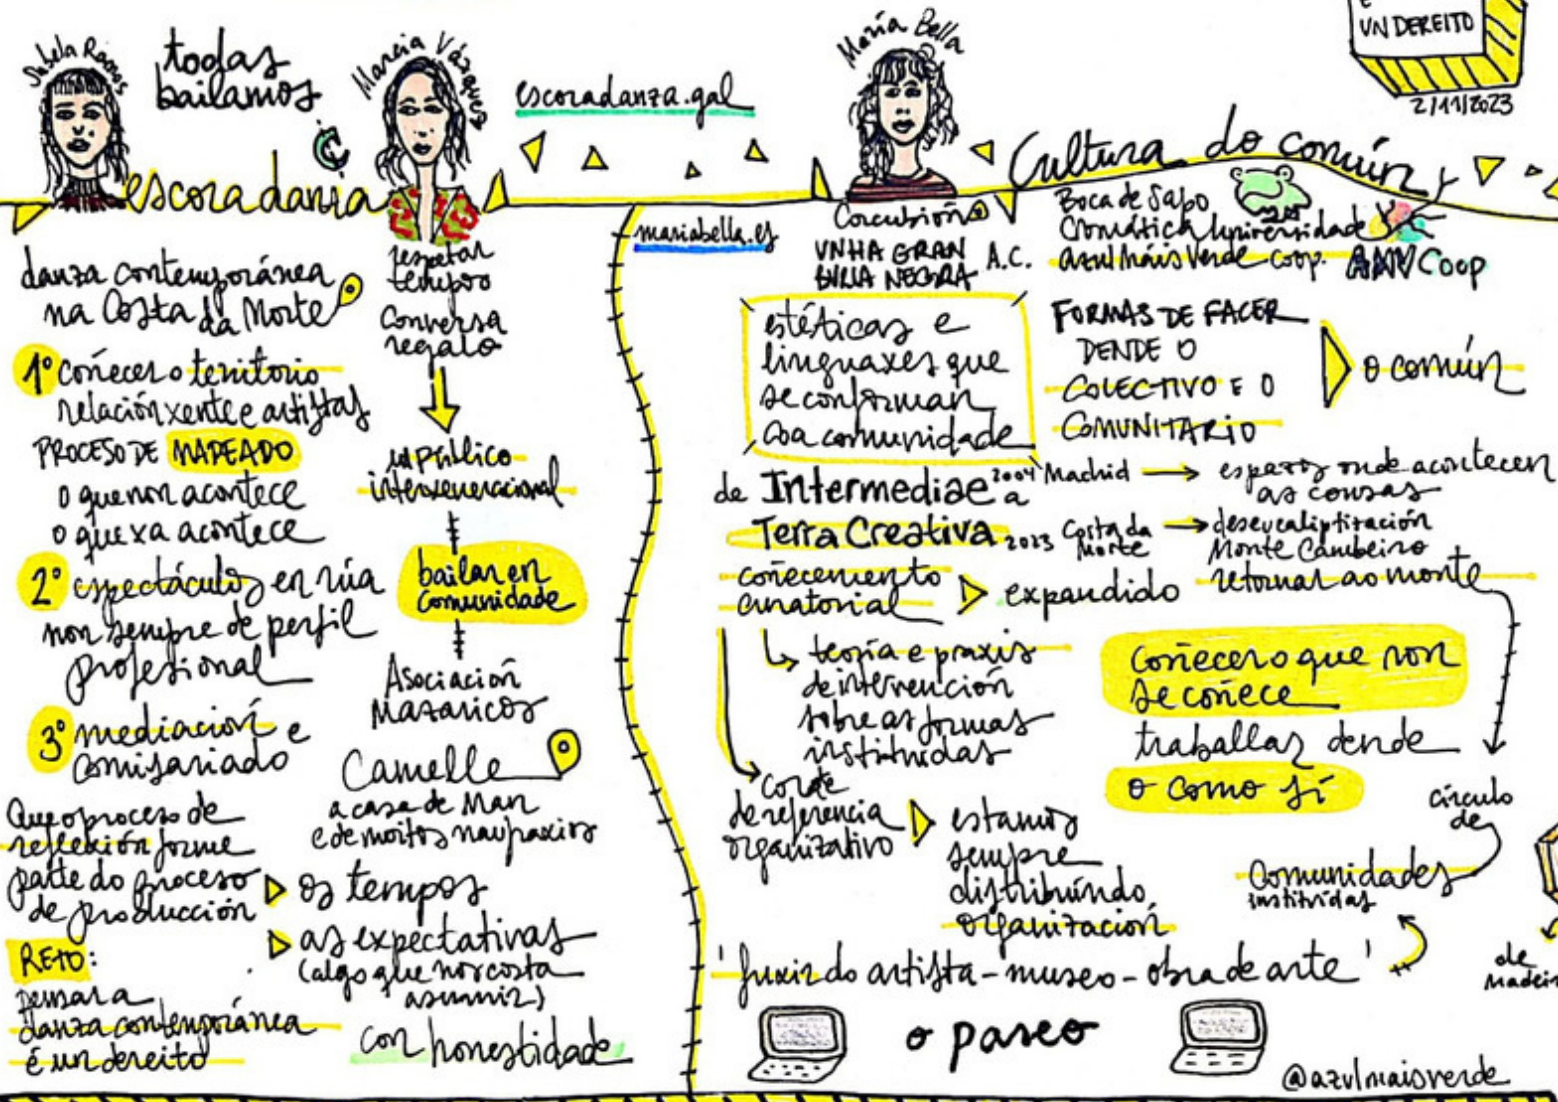 Sabela Ramos
todas
bailamos
Marcia Vázquez
escoradanza.gal
escoradanza
danza contemporánea
na Costa da Morte
1º coñecer o territorio
relación xente e artistas
PROCESO DE MAPEADO
o que non acontece
o que xa acontece
2º espectáculos en rúa
non sempre de perfil
profesional
3º mediación e
comisariado
Que o proceso de
reflexión forme
parte do proceso
de producción
RETO:
pensar a
danza contemporánea
é un dereito
respetar
tempos
Conversa
regalo
público
interxeneracional
bailar en
comunidade
Asociación
Mazaricos
Camelle
a casa de Man
e de moitos naufraxios
os tempos
as expectativas
(algo que nos costa
asumir)
con honestidade
María Bella
E
UN DEREITO
2/11/2023
Cultura do común
mariabella.es
Corcubión
UNHA GRAN
BURLA NEGRA A.C.
Boca de Sapo
Cromática Universidade
azul Máis Verde coop.
AMVCoop
estéticas e
linguaxes que
se conforman
coa comunidade
FORMAS DE FACER
DENDE O
COLECTIVO E O
COMUNITARIO
o común
de Intermediae 2004 Madrid
espazos onde acontecen
as cousas
a
Terra Creativa 2023 Costa da
Morte
deseucaliptización
Monte Cambeiro
retornar ao monte
coñecemento
curatorial
expandido
teoría e praxis
de intervención
sobre as formas
instituidas
corde
de referencia
organizativo
estamos
sempre
distribuíndo
organización
coñecer o que non
se coñece
traballar dende
o como si
círculo
de
comunidades
instituidas
'fuxir do artista - museo - obra de arte'
o paseo
de
madeir
@azulmaisverde